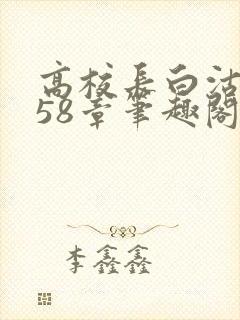 高校长白洁
58章笔趣阁
李鑫鑫